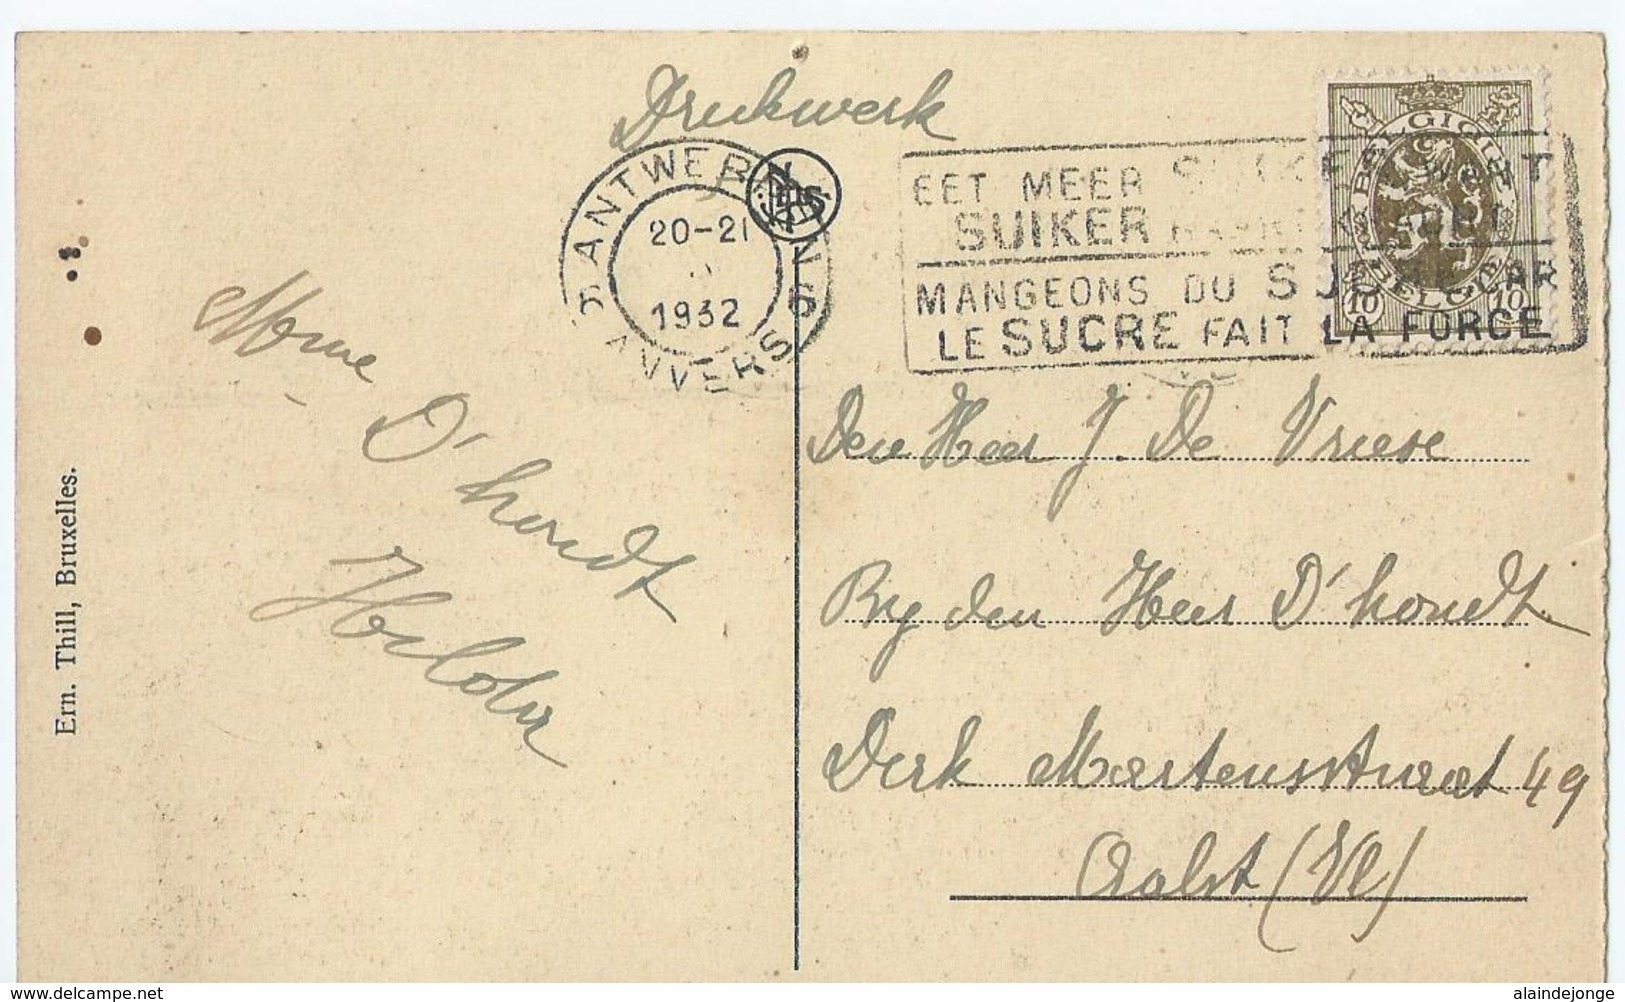 Drukwerk
ANTWERPEN 6
20-21
1932
ANVERS
EET MEER SUIKER WANT
SUIKER
MANGEONS DU SUCRE CAR
LE SUCRE FAIT LA FORCE
BELGIQUE
BELGIË
10 10
Mme
D'hondt
Helder
Den Heer J. De Vriese
By den Heer D'hondt.
Derk Martensstraat 49
Aalst (Vl)
Ern. Thill, Bruxelles.
delcampe.net
alaindejonge